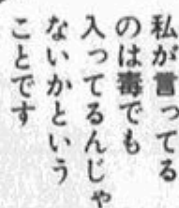 私が言ってる
のは毒でも
入ってるんじゃ
ないかという
ことです